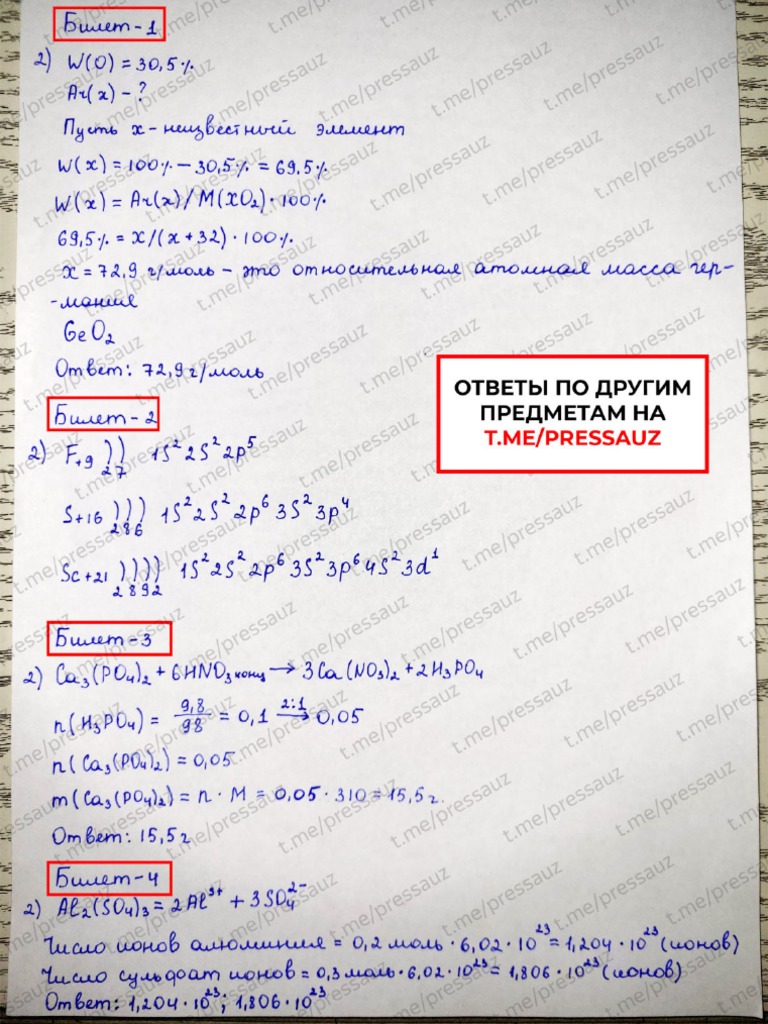 Билет-1
2) W(O) = 30,5%
Ar(x) - ?
Пусть x - неизвестный элемент
W(x) = 100% - 30,5% = 69.5%
W(x) = Ar(x)/M(XO₂)·100%
69,5% = x/(x+32)·100%
x = 72,9 г/моль - это относительная атомная масса гер-
-мания
GeO₂
Ответ: 72,9 г/моль
ОТВЕТЫ ПО ДРУГИМ
ПРЕДМЕТАМ НА
T.ME/PRESSAUZ
Билет-2
2) F+9 )) 1S² 2S² 2p⁵
2 7
S+16 ))) 1S² 2S² 2p⁶ 3S² 3p⁴
2 8 6
Sc+21 )))) 1S² 2S² 2p⁶ 3S² 3p⁶ 4S² 3d¹
2 8 9 2
Билет-3
2) Ca₃(PO₄)₂ + 6HNO₃конц → 3Ca(NO₃)₂ + 2H₃PO₄
n(H₃PO₄) = 9,8/98 = 0,1 2:1→ 0,05
n(Ca₃(PO₄)₂) = 0,05
m(Ca₃(PO₄)₂) = n · M = 0,05 · 310 = 15,5 г.
Ответ: 15,5 г
Билет-4
2) Al₂(SO₄)₃ = 2Al³⁺ + 3SO₄²⁻
Число ионов алюминия = 0,2 моль · 6,02 · 10²³ = 1,204 · 10²³ (ионов)
Число сульфат ионов = 0,3 моль · 6,02 · 10²³ = 1,806 · 10²³ (ионов)
Ответ: 1,204 · 10²³; 1,806 · 10²³
t.me/pressauz